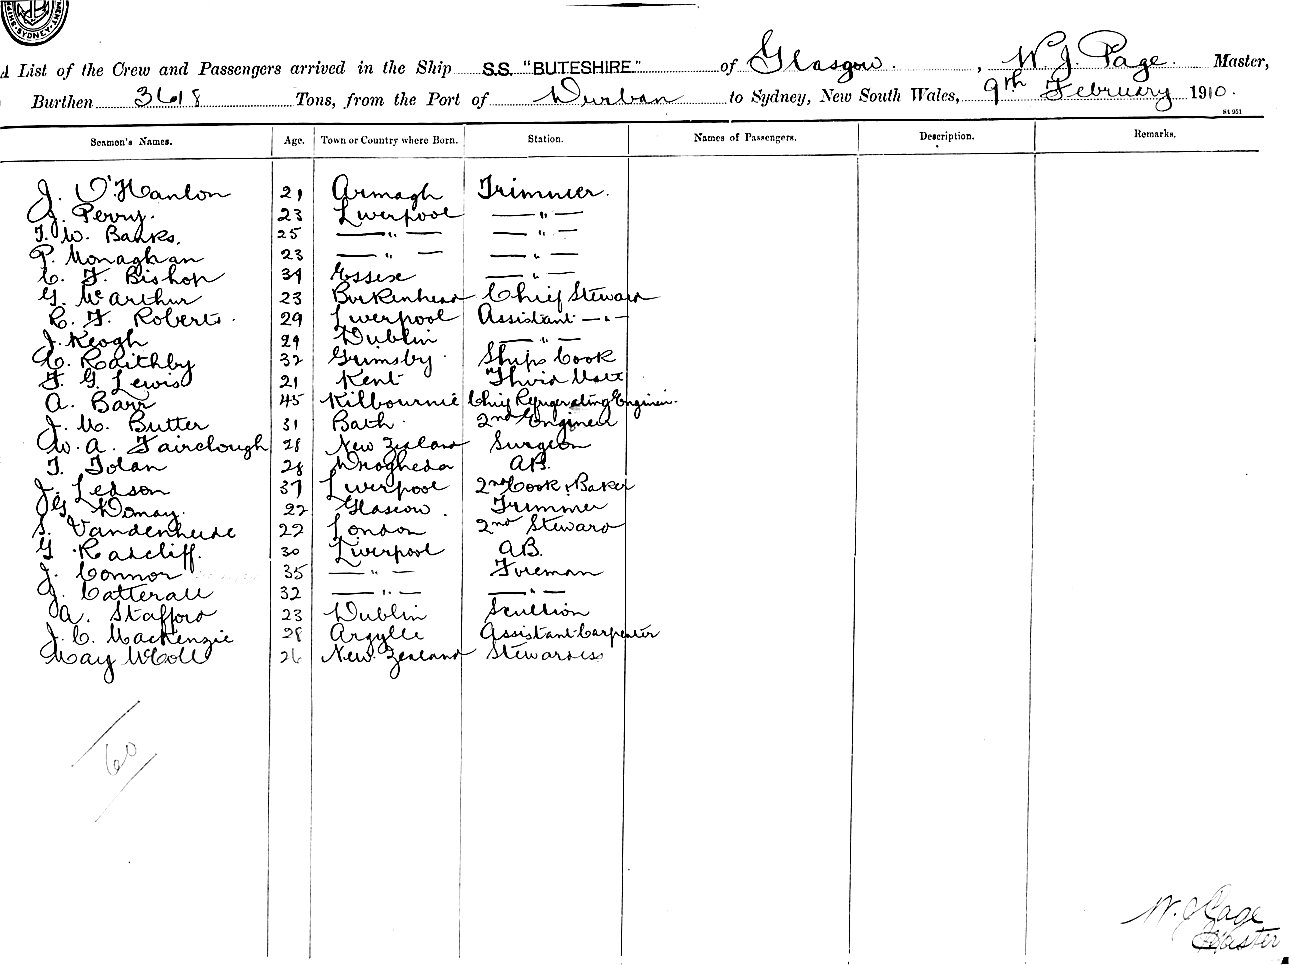 A List of the Crew and Passengers arrived in the Ship S.S. "BUTESHIRE" of Glasgow, W. J. Page Master,
Burthen 3618 Tons, from the Port of Durban to Sydney, New South Wales, 9th February 1910.
St 951
Seamen's Names. Age. Town or Country where Born. Station. Names of Passengers. Description. Remarks.
J. O'Hanlon 21 Armagh Trimmer.
J. Perry. 23 Liverpool — " —
T. W. Banks. 25 — " — — " —
P. Monaghan 23 — " — — " —
C. F. Bishop 34 Essex — " —
G. McArthur 23 Birkenhead Chief Steward
C. F. Roberts. 29 Liverpool Assistant — " —
J. Keogh 29 Dublin — " —
C. Raithby 32 Grimsby Ships Cook
F. G. Lewis 21 Kent Third Mate
A. Barr 45 Kilbournie Chief Refrigerating Engineer.
J. M. Butter 31 Bath 2nd Engineer
W. A. Fairclough 28 New Zealand Surgeon
T. Tolan 28 Drogheda AB.
J. Ledson 37 Liverpool 2nd Cook & Baker
G. 22 Glascow. Trimmer
S. Vandenheuse 22 London 2nd Steward
G. Radcliff. 30 Liverpool AB.
J. Connor 35 — " — Fireman
J. Catterall 32 — " — — " —
A. Stafford 23 Dublin Scullion
J. C. Mackenzie 28 Argylle Assistant Carpenter
May McColl 26 New Zealand Stewardess
60
W. J. Page
Master